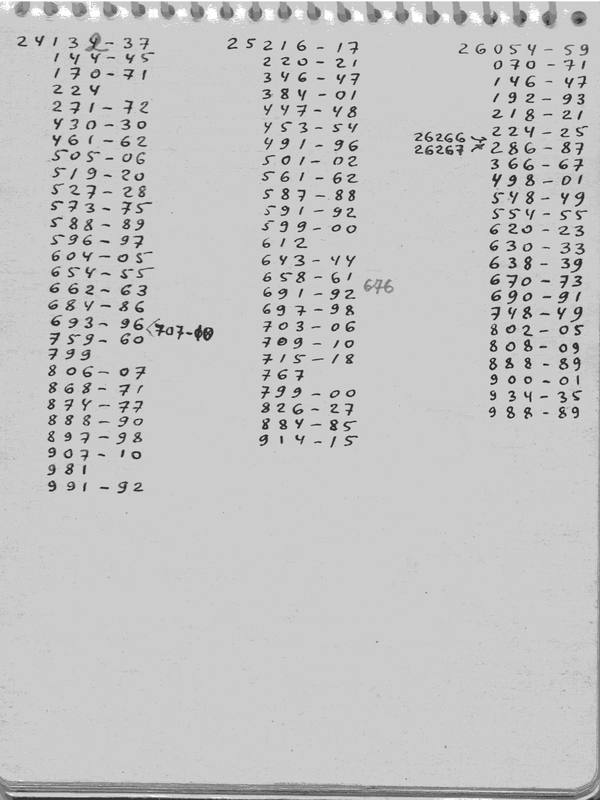 24134-37
144-45
170-71
224
271-72
430-30
461-62
505-06
519-20
527-28
573-75
588-89
596-97
604-05
654-55
662-63
684-86
693-96
<707-10
759-60
799
806-07
868-71
874-77
888-90
897-98
907-10
981
991-92
25216-17
220-21
346-47
384-01
447-48
453-54
491-96
501-02
561-62
587-88
591-92
599-00
612
643-44
658-61
676
691-92
697-98
703-06
709-10
715-18
767
799-00
826-27
884-85
914-15
26054-59
070-71
146-47
192-93
218-21
224-25
26266
26267
286-87
366-67
498-01
548-49
554-55
620-23
630-33
638-39
670-73
690-91
748-49
802-05
808-09
888-89
900-01
934-35
988-89